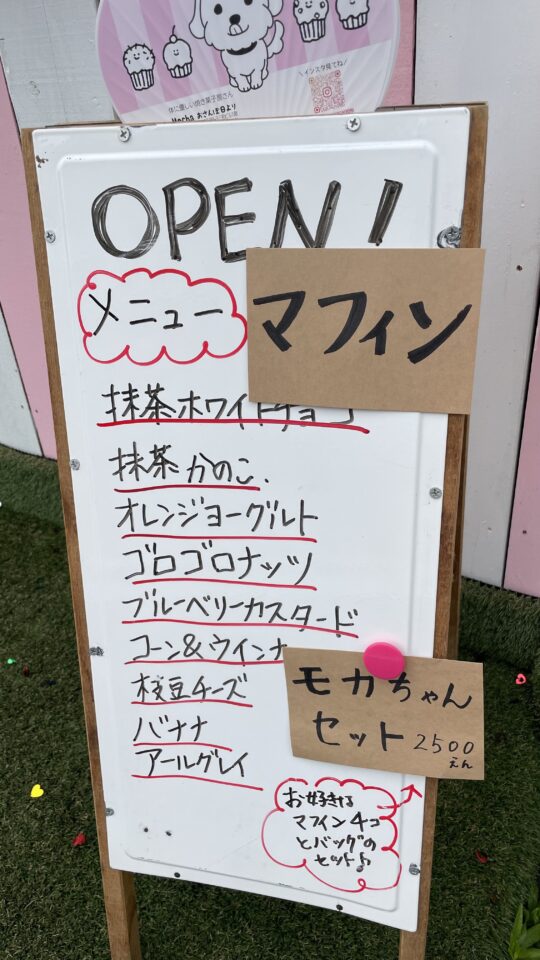 ＼インスタ見てね／
体に優しい焼き菓子屋さん
Mocha おさんぽ日より
OPEN!
メニュー
マフィン
抹茶ホワイトチョコ
抹茶かのこ
オレンジヨーグルト
ゴロゴロナッツ
ブルーベリーカスタード
コーン&ウインナ
枝豆チーズ
バナナ
アールグレイ
モカちゃん
セット 2500
えん
お好きな
マフィン4コ
とバッグの
セット♪